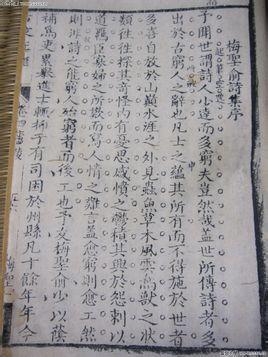 梅聖俞詩集序
予聞世謂詩人少達而多窮夫豈然哉蓋世所傳詩者多
出於古窮人之辭也凡士之蘊其所有而不得施於世者
多喜自放於山巔水涯之外見蟲魚草木風雲鳥獸之狀
類往往探其奇怪內有憂思感憤之鬱積其興於怨刺以
道羈臣寡婦之所歎而寫人情之難言蓋愈窮則愈工然
則非詩之能窮人殆窮者而後工也予友梅聖俞少以蔭
補為吏累舉進士輒抑於有司困於州縣凡十餘年年今
梅聖